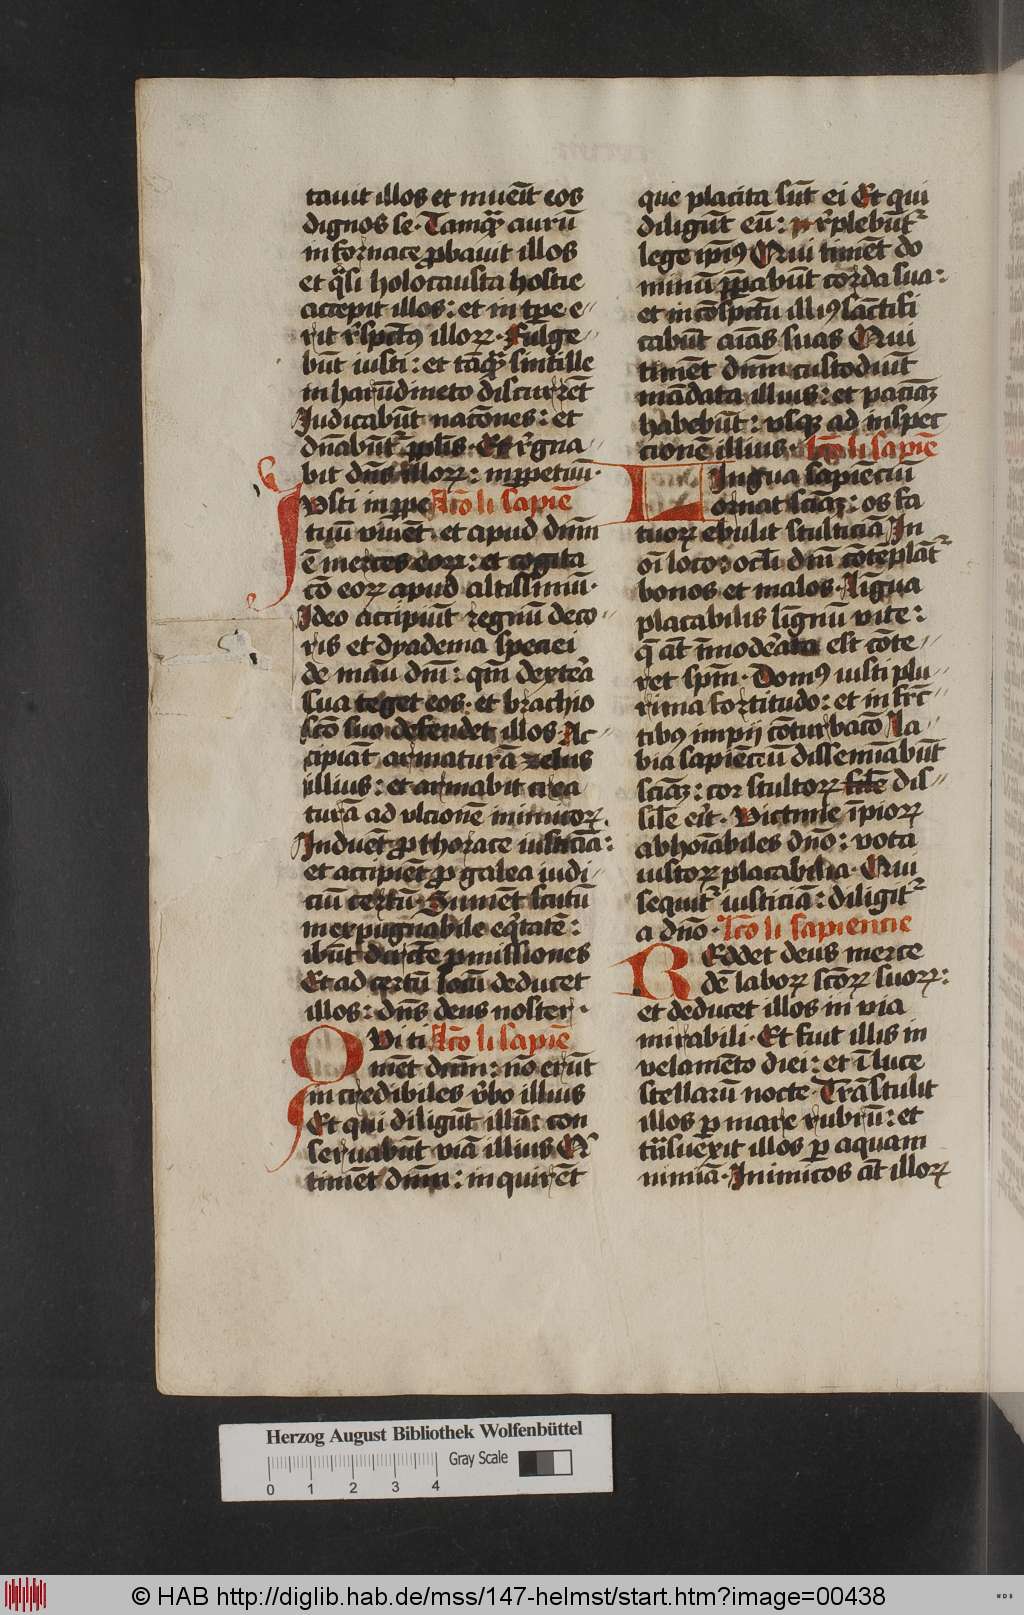 tauit illos et inuēit eos
dignos se· Tamqȝ aurū
in fornace ꝓbauit illos
et qͣsi holocausta hostie
accepit illos: et in tpe e-
rit r̄spcts illoꝝ· Fulge
būt iusti: et tāqȝ sintille
in harūdineto discurrēt
Judicabūt nacōnes: et
dnābūt pplis· Et r̄gna-
bit dn̄s illoꝝ: inꝑpetuū·
Vsti in ꝑpe Lcō li sapiē
tuū viuēt· et apud dn̄m
ē merces eoꝝ: et cogita
cō eoꝝ apud altissimū·
Ideo accipiūt regnū deco-
ris et dyadema speciei
de manu dn̄i: qm̄ dextera
sua teget eos· et brachio
scō suo defendet illos· Ac-
cipiat armaturā zelus
illius: et armabit crea
turā ad vlcionē inimicoꝝ·
Induet ꝓ thorace iusticiā:
et accipiet ꝓ galea iudi-
ciū certū· Sumet scutū
inexpugnabile eqͥtatē:
ibūt dircte ꝑmissiones
Et ad certū locū deducet
illos: dn̄s deus noster·
QVi ti Lcō li sapiē
mēt dn̄m: nō erūt
incredibiles v̄bo illius
Et qui diligūt illū: con
seruabūt viā illius Qͥ
timēt dn̄m: inquirēt
que placita sūt ei Et qui
diligūt eū: r̄plebūtᷣ
lege ipsiꝰ Qui timēt do
minū ꝑpabūt corda sua:
et in cōspctu illiꝰ sāctifi
cabūt aīas suas Qui
timēt dn̄m custodiūt
mādata illius: et paciāȝ
habebūt: vsqȝ ad inspec
cionē illius· Lcō li sapiē
LIngua sapienciū
ornat sciāȝ: os fa
tuoꝝ ebulit stulticiā In
oī loco: ocli dn̄i cōtēplātᷣ
bonos et malos· Līgua
placabilis lignū vite:
q̄ āt īmoderata est cōte-
ret spm̄· Domꝰ iusti plu-
rima fortitudo: et in frc̄-
tibꝰ impij cōturbacō La-
bia sapienciū dissemiābūt
sciāȝ: cor stultoꝝ dis-
sil̄e er̄t· Victime īpioꝝ
abhoīabiles dn̄o: vota
iustoꝝ placabilia· Qui
sequitᷣ iusticiā: diligitᷣ
a dn̄o· Lcō li sapiencie
REddet deus merce
dē laboꝝ scōꝝ suoꝝ:
et deducet illos in via
mirabili· Et fuit illis in
velamēto diei: et ī luce
stellarū nocte· Trāstulit
illos ꝑ mare rubrū: et
trāsuexit illos ꝑ aquam
nimiā· Inimicos āt illoꝝ
Herzog August Bibliothek Wolfenbüttel
Gray Scale
0 1 2 3 4
© HAB http://diglib.hab.de/mss/147-helmst/start.htm?image=00438